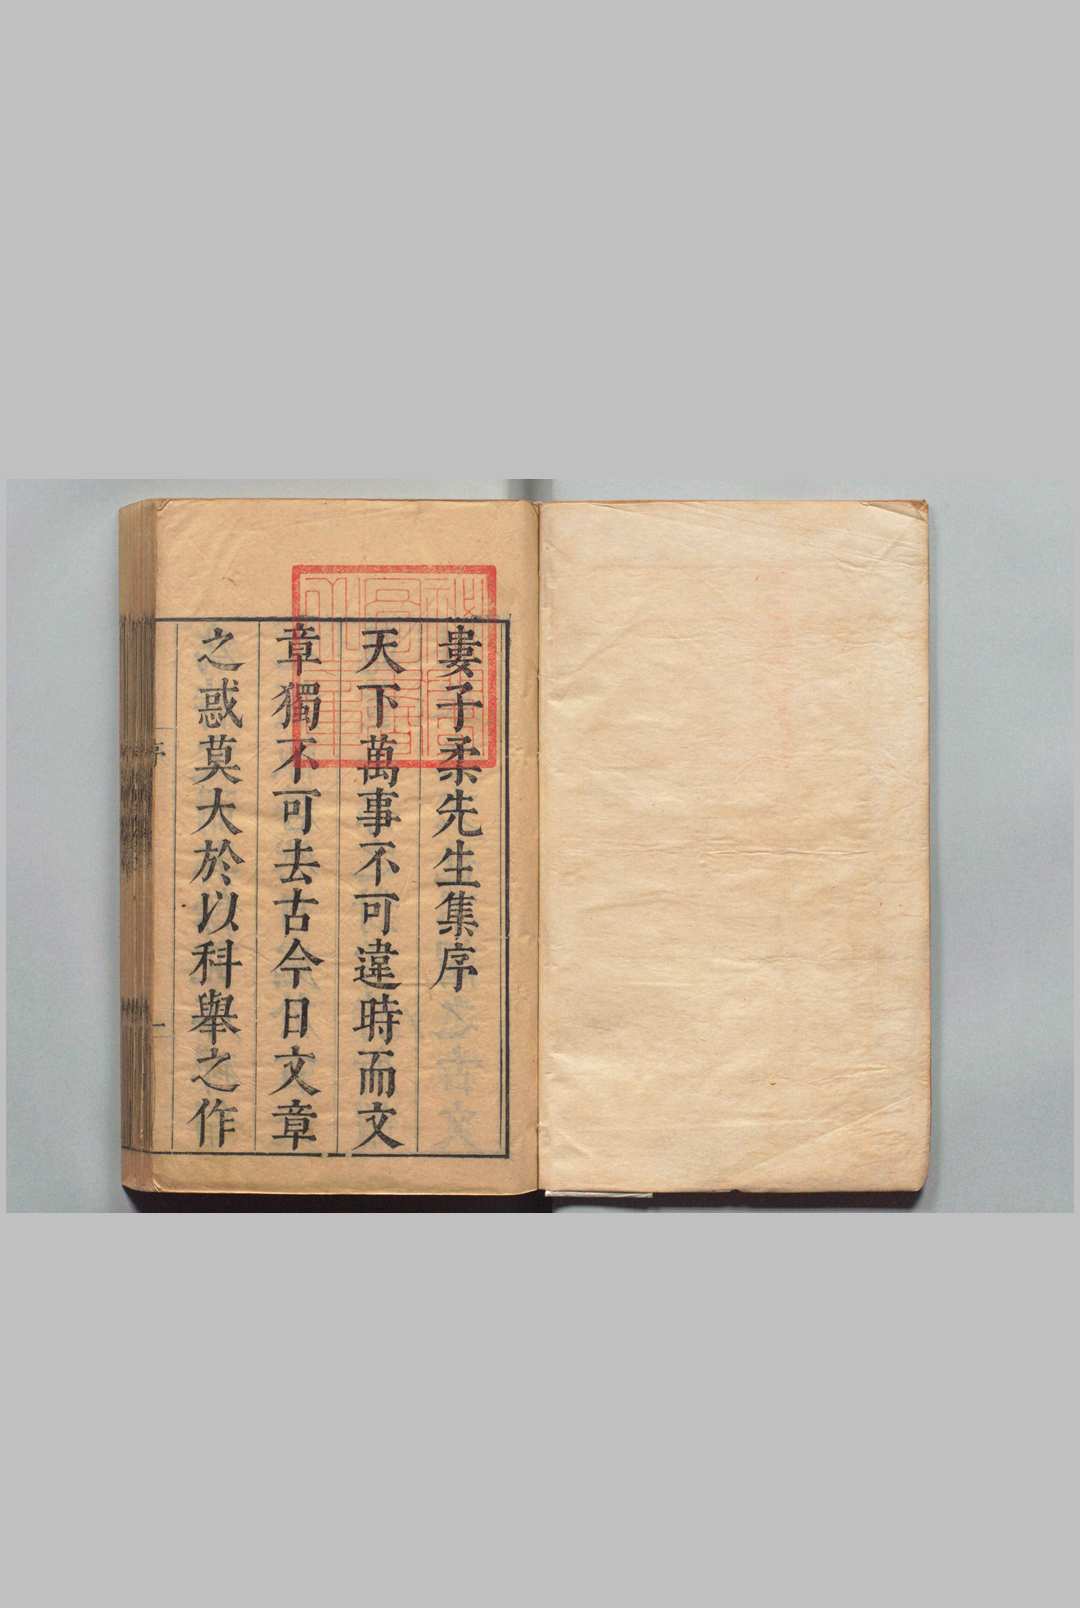 婁子柔先生集序
天下萬事不可違時而文
章獨不可去古今日文章
之惑莫大於以科舉之作
序
一